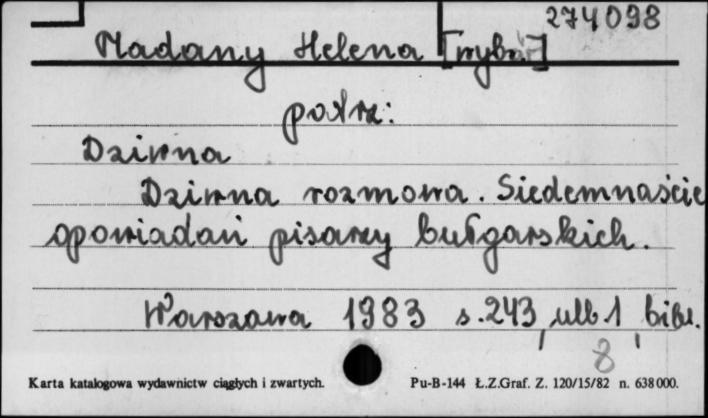 274098
Madany Helena [wybr.]
patrz:
Dziwna
Dziwna rozmowa. Siedemnaście
opowiadań pisarzy bułgarskich.
Warszawa 1983 s.243, ulb.1, bibl.
8
Karta katalogowa wydawnictw ciągłych i zwartych. Pu-B-144 Ł.Z.Graf. Z. 120/15/82 n. 638000.